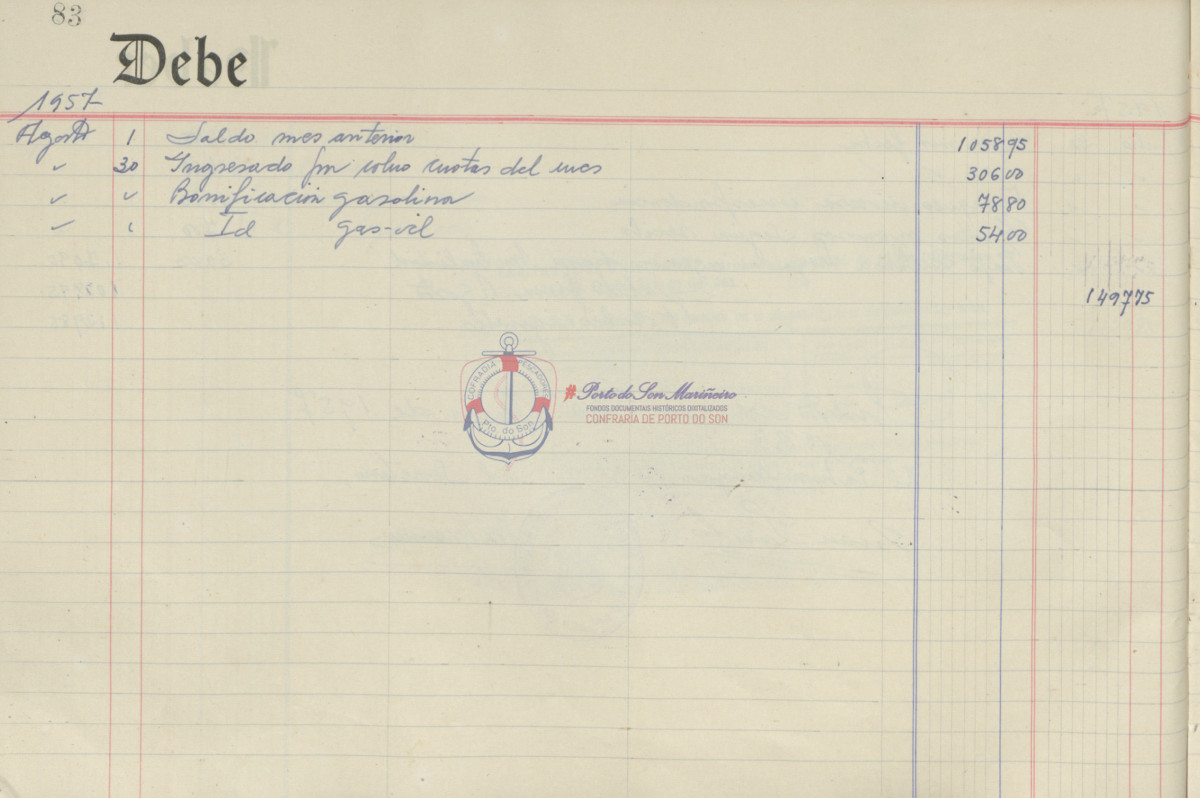 83
Debe
1957
Agosto 1 Saldo mes anterior 1058 95
✓ 30 Ingresado por cobro cuotas del mes 306 00
✓ ✓ Bonificación gasolina 78 80
✓ ✓ Id gas-oil 54 00
1497 75
COFRADIA PESCADORES
Pto. do Son
# Porto do Son Mariñeiro
FONDOS DOCUMENTAIS HISTÓRICOS DIXITALIZADOS
CONFRARÍA DE PORTO DO SON